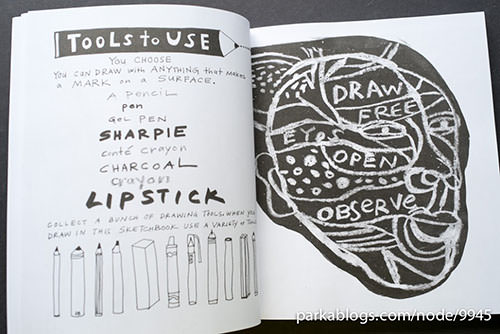 TOOLS to USE
YOU CHOOSE
YOU CAN DRAW with ANYTHING that MAKES
a MARK on a SURFACE.
a PENCIL
pen
GEL PEN
SHARPIE
conté crayon
CHARCOAL
crayon
LIPSTICK
COLLECT A BUNCH OF DRAWING TOOLS. WHEN YOU
DRAW IN THIS SKETCHBOOK USE A VARIETY of
DRAW
FREE
EYES
OPEN
OBSERVE
parkablogs.com/node/9945